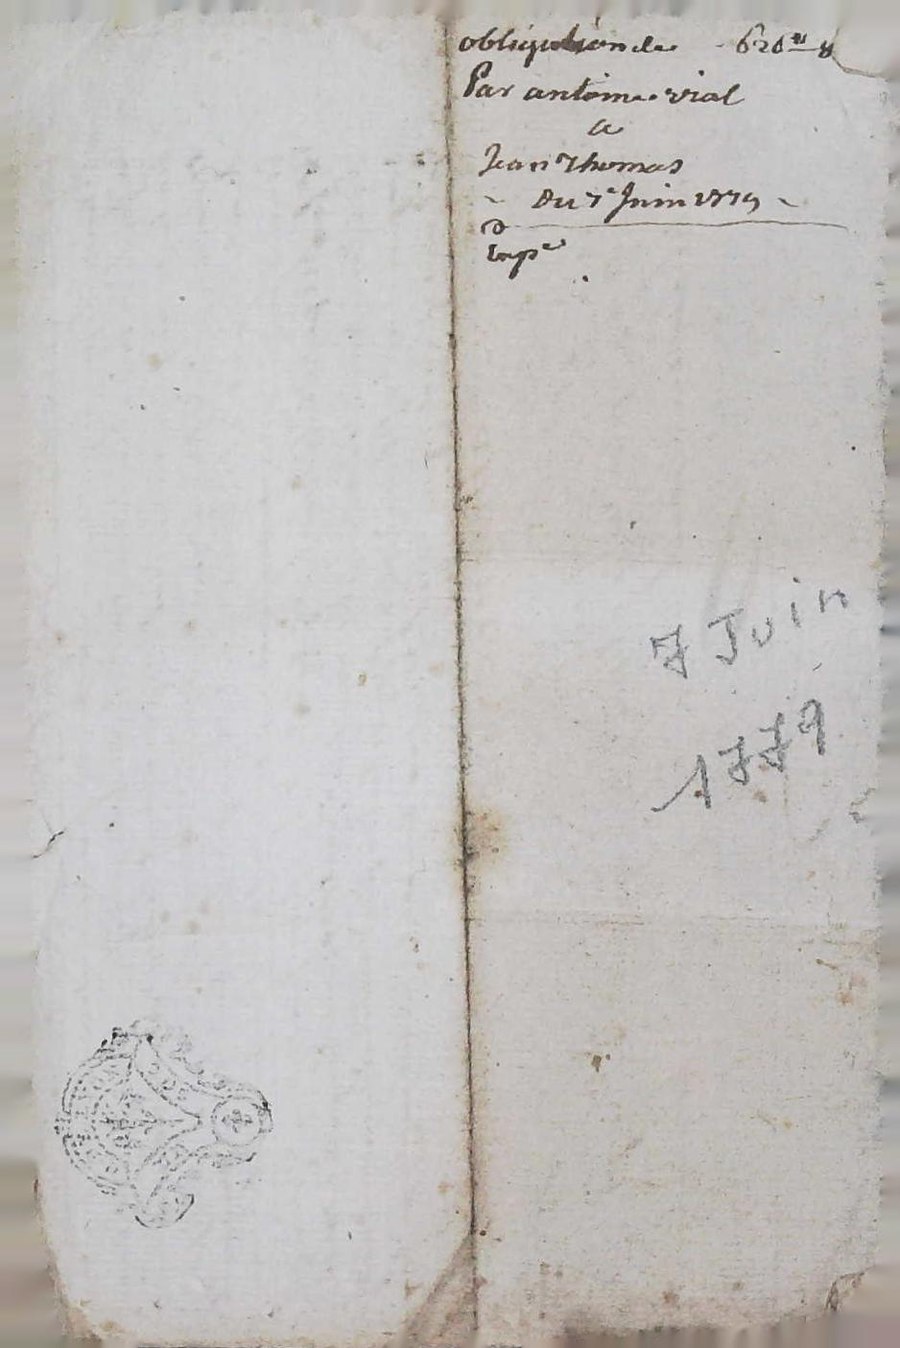 obligation de 620ᵗᵗ
Par antoine vial
a
Jean Thomas
Du 7e Juin 1779
Expe
7 Juin
1779